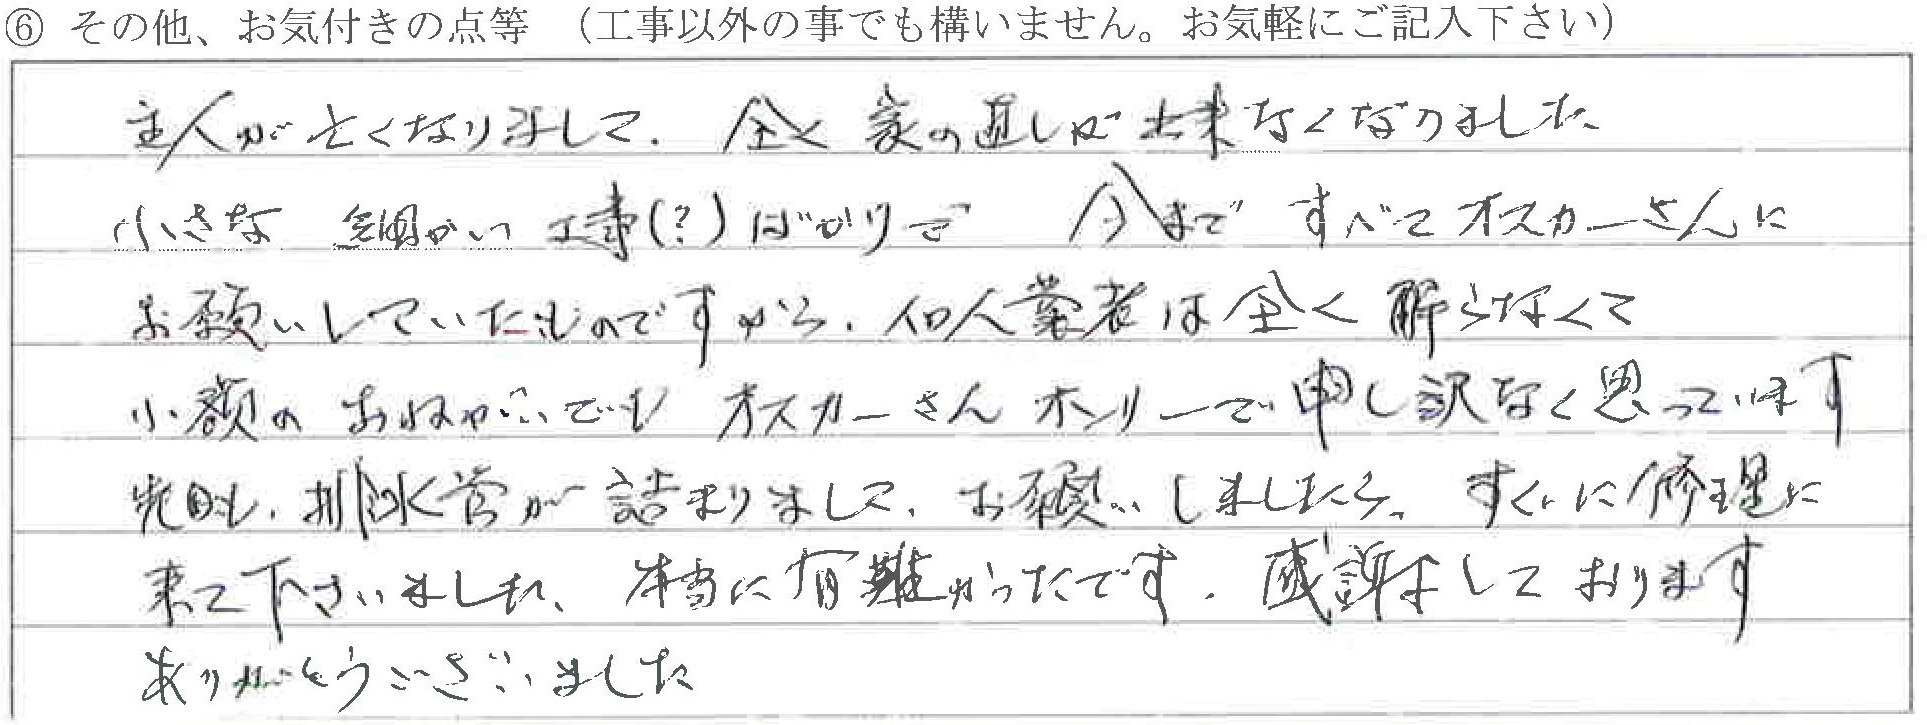 ⑥ その他、お気付きの点等 （工事以外の事でも構いません。お気軽にご記入下さい）
主人が亡くなりまして、全く家の直しが出来なくなりました
小さな 細かい工事(?)ばかりで 今まで すべてオスカーさんに
お願いしていたものですから、個人業者は全く解らなくて
小額の おねがいでも オスカーさんオンリーで申し訳なく思っています
先日も、排水管が詰まりまして、お願いしましたら、すぐに修理に
来て下さいました、本当に有難かったです。感謝しております
ありがとうございました